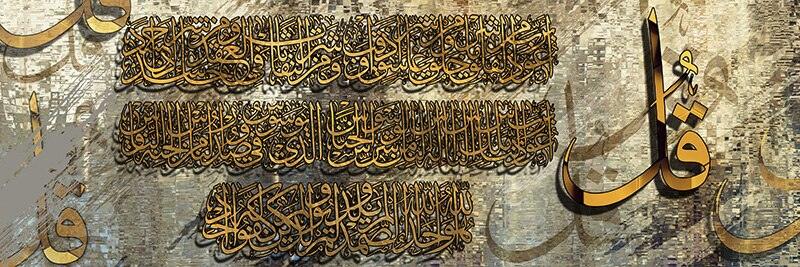 قل
أعوذ برب الفلق من شر ما خلق ومن شر غاسق إذا وقب ومن شر النفاثات في العقد ومن شر حاسد إذا حسد
أعوذ برب الناس ملك الناس إله الناس من شر الوسواس الخناس الذي يوسوس في صدور الناس من الجنة والناس
هو الله أحد الله الصمد لم يلد ولم يولد ولم يكن له كفوا أحد